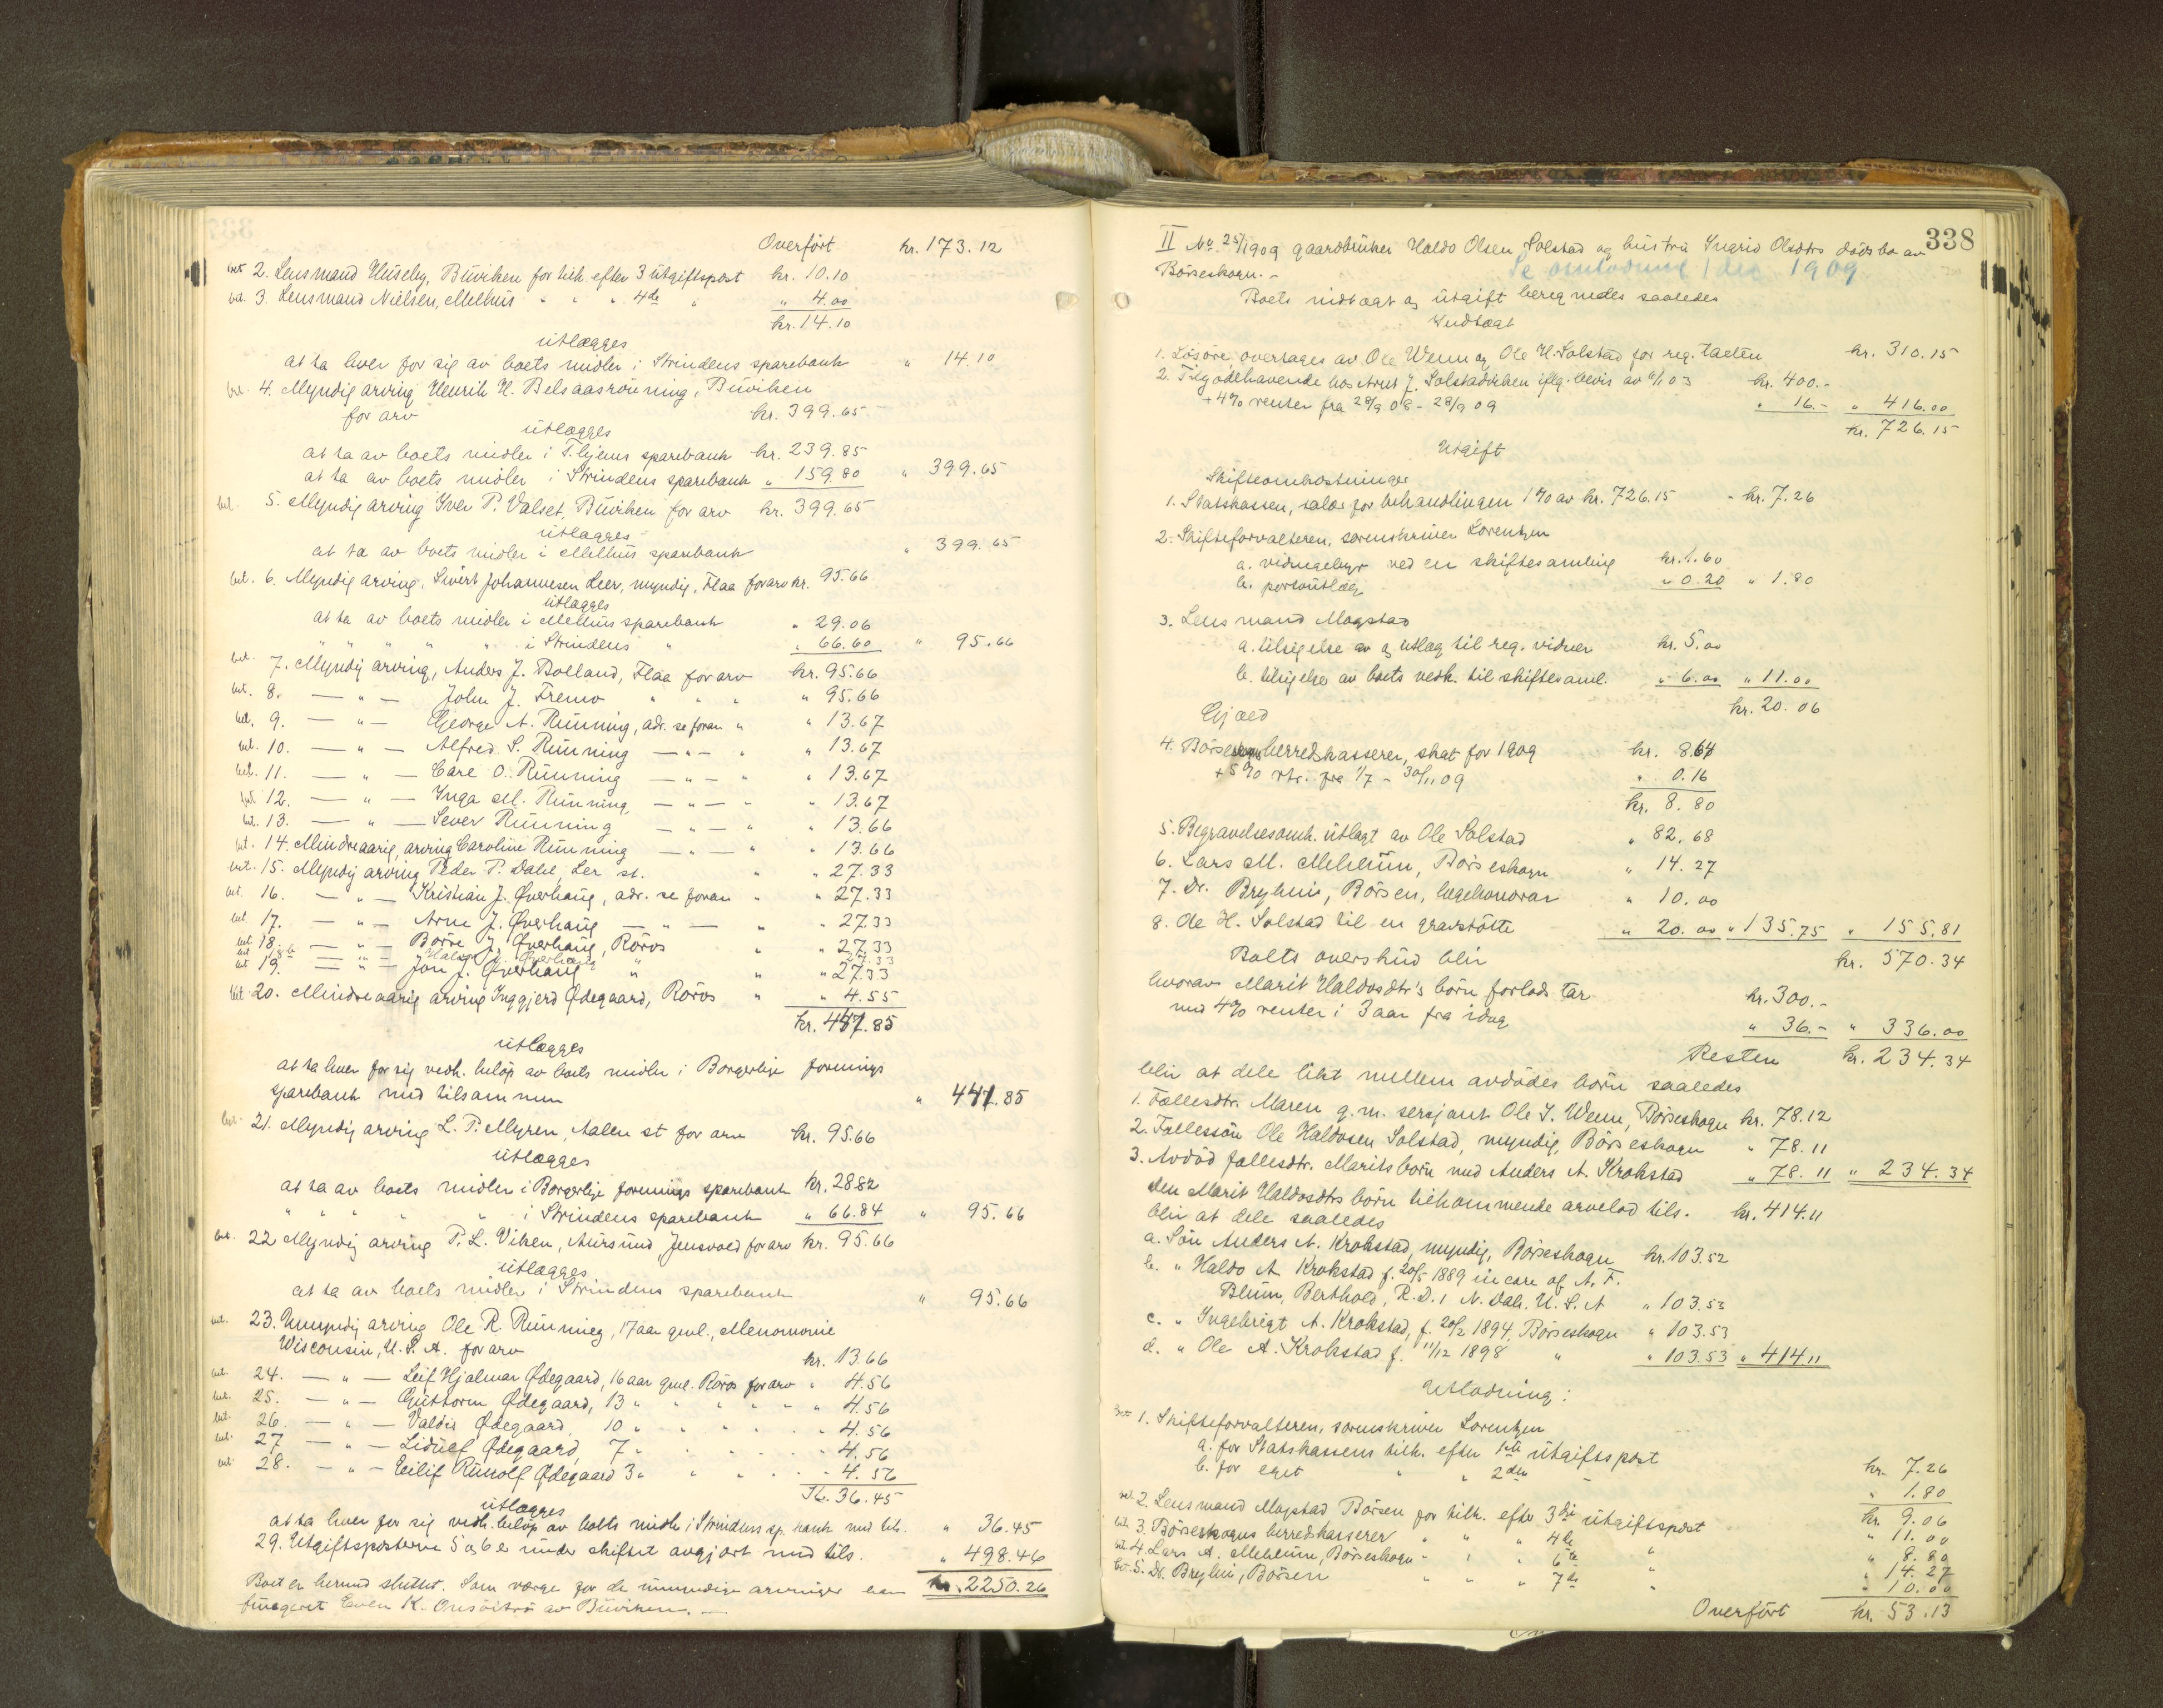 Overført kr. 173.12
bet. 2. Lensmand Huseby, Buviken for tilk. efter 3 utgiftspost kr. 10.10
bet. 3. Lensmand Nielsen, Melhus " " " 4de " " 4.00
kr. 14.10
utlægges
at ta hver for sig av boets midler i Strindens sparebank " 14.10
bet. 4. Myndig arving Henrik H. Belsaasrønning, Buviken
for arv kr. 399.65
utlægges
at ta av boets midler i T.hjems sparebank kr. 239.85
at ta av boets midler i Strindens sparebank " 159.80 " 399.65
bet. 5. Myndig arving Iver P. Valset, Buviken for arv kr. 399.65
utlægges
at ta av boets midler i Melhus sparebank " 399.65
bet. 6. Myndig arving, Sivert Johannesen Leer, myndig, Flaa for arv kr. 95.66
utlægges
at ta av boets midler i Melhus sparebank " 29.06
" " " " " i Strindens " " 66.60 " 95.66
bet. 7. Myndig arving, Anders J. Bolland, Flaa for arv kr. 95.66
bet. 8. — " — John J. Fremo " " " " 95.66
bet. 9. — " — George A. Rünning, adr. se foran " " 13.67
bet. 10. — " — Alfred S. Rünning — " — " " 13.67
bet. 11. — " — Carl O. Rünning — " — " " 13.67
bet. 12. — " — Inga M. Rünning, — " — " " 13.67
bet. 13. — " — Sever Rünning — " — " " 13.66
bet. 14. Mindreaarig arving Caroline Rünning — " — " " 13.66
bet. 15. Myndig arving Peder P. Dahl, Ler st. " " 27.33
bet. 16. — " — Kristian J. Øverhaug, adr. se foran " " 27.33
bet. 17. — " — Arne J. Øverhaug — " — " " 27.33
bet. 18. — " — Børre J. Øverhaug, Røros " " 27.33
bet. 18b — " — Halvor J. Øverhaug " 27.33
bet. 19. — " — Jon J. Øverhaug " " " 27.33
bet. 20. Mindreaarig arving Inggjerd Ødegaard, Røros " " 4.55
kr. 441.85
utlægges
at ta hver for sig vedk. beløp av boets midler i Borgerlige forenings
sparebank med tilsammen " 441.85
bet. 21. Myndig arving L. P. Myren, Aalen st for arv kr. 95.66
utlægges
at ta av boets midler i Borgerlige forenings sparebank kr. 28.82
" " " " " i Strindens sparebank " 66.84 " 95.66
bet. 22 Myndig arving P. L. Viken, Aursund, Jensvold for arv kr. 95.66
utlægges
at ta av boets midler i Strindens sparebank " 95.66
bet. 23. Umyndig arving Ole R. Rünning, 17 aar gml., Menomonie
Wisconsin, U.S.A. for arv kr. 13.66
bet. 24. — " — Leif Hjalmar Ødegaard, 16 aar gml. Røros for arv " 4.56
bet. 25. — " — Guttorm Ødegaard, 13 " " " " " " 4.56
bet. 26. — " — Valdis Ødegaard, 10 " " " " " 4.56
bet. 27 — " — Lidulf Ødegaard, 7 " " " " " 4.56
bet. 28. — " — Eilif Runolf Ødegaard 3 " " " " " 4.56
kr. 36.45
utlægges
at ta hver for sig vedk. beløp av boets midler i Strindens sp. bank med tils. " 36.45
29. Utgiftsposterne 5 og 6 er under skiftet avgjort med tils. " 498.46
Boet er hermed sluttet. Som værge for de umyndige arvinger har kr. 2250.26
fungeret Even K. Onsøien av Buviken. —
338
II No. 25/1909 gaardbruker Haldo Olsen Solstad og hustru Ingrid Olsdtrs dødsbo av
Børseskogn. - Se omlodning 1 dec 1909
Boets indtægt og utgift beregnedes saaledes
Indtægt
1. Løsøre, overtages av Ole Wenn og Ole H. Solstad for reg. taksten kr. 310.15
2. Tilgodehavende hos Arnt J. Solstadviken iflg. bevis av 6/1 03 kr. 400.-
+ 4% renter fra 28/9 08 - 28/9 09 " 16.- " 416.00
kr. 726.15
Utgift
Skifteomkostninger
1. Statskassen, salær for behandlingen 1% av kr. 726.15 - kr. 7.26
2. Skifteforvalteren, sorenskriver Lorentzen
a. vidnegebyr ved en skiftesamling kr. 1.60
b. portoutlæg " 0.20 " 1.80
3. Lensmand Mogstad
a. tilsigelse av og utlæg til reg. vidner kr. 5.00
b. tilsigelse av boets vedk. til skiftesaml. " 6.00 " 11.00
kr. 20.06
Gjæld
4. Børseskogns herredskasserer, skat for 1909 kr. 8.64
+ 5% rtr. fra 1/7 - 30/11 09 " 0.16
kr. 8.80
5. Begravelsesomk. utlagt av Ole Solstad " 82.68
6. Lars M. Mehlum, Børseskogn " 14.27
7. Dr. Bryhni, Børsen, lægehonorar " 10.00
8. Ole H. Solstad til en gravstøtte " 20.00 " 135.75 " 155.81
Boets overskud blir kr. 570.34
hvorav Marit Haldosdtr's børn forlods tar kr. 300.-
med 4% renter i 3 aar fra idag " 36.- " 336.00
Resten kr. 234.34
blir at dele likt mellem avdødes børn saaledes
1. Fællesdtr. Maren g.m. sersjant Ole I. Wenn, Børseskogn kr. 78.12
2. Fællessøn Ole Haldosen Solstad, myndig, Børseskogn " 78.11
3. Avdød fællesdtr. Marits børn med Anders A. Krokstad " 78.11 " 234.34
Den Marit Haldosdtrs børn tilkommende arvelod tils. kr. 414.11
blir at dele saaledes
a. Søn Anders A. Krokstad, myndig, Børseskogn kr. 103.52
b. " Haldo A. Krokstad f. 20/5 1889 in care of A. F.
Blum, Berthold, R.D.1 N. Dak. U.S.A " 103.53
c. " Ingebrigt A. Krokstad, f. 20/2 1894, Børseskogn " 103.53
d. " Ole A. Krokstad f. 11/12 1898 " " 103.53 " 414.11
Utlodning:
bet. 1. Skifteforvalteren, sorenskriver Lorentzen
a. for Statskassens tilk. efter 1ste utgiftspost kr. 7.26
b. for eget " " 2den " " 1.80
kr. 9.06
bet. 2. Lensmand Mogstad Børsen for tilk. efter 3die utgiftspost " 11.00
bet. 3. Børseskogns herredskasserer " " " 4de " " 8.80
bet. 4. Lars A. Mehlum, Børseskogn " " " 6te " " 14.27
bet. 5. Dr. Bryhni, Børsen " " " 7de " " 10.00
Overført kr. 53.13